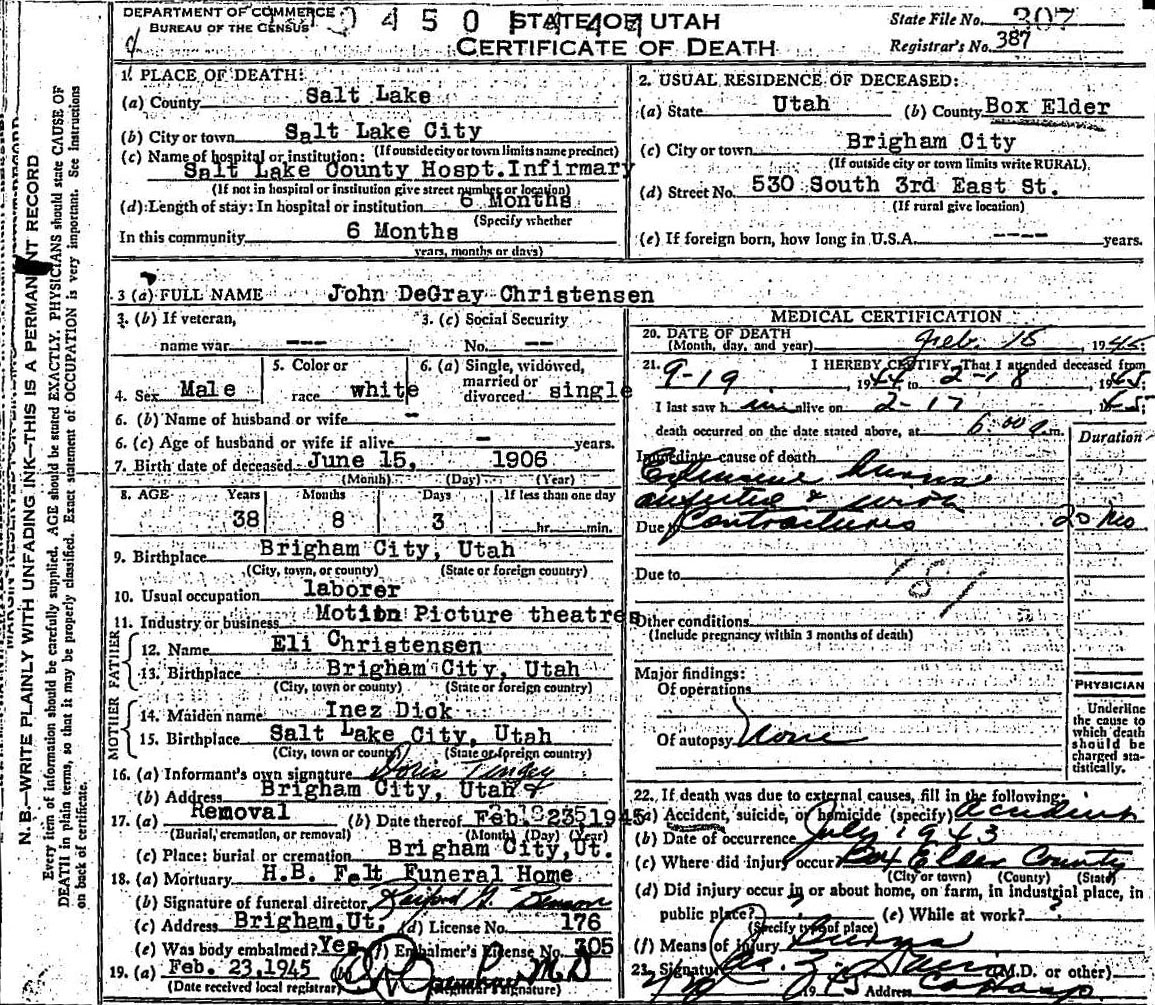 DEPARTMENT OF COMMERCE
BUREAU OF THE CENSUS
STATE OF UTAH
CERTIFICATE OF DEATH
State File No. 307
Registrar's No. 387
N.B.—WRITE PLAINLY WITH UNFADING INK—THIS IS A PERMANENT RECORD
Every item of information should be carefully supplied. AGE should be stated EXACTLY. PHYSICIANS should state CAUSE OF
DEATH in plain terms, so that it may be properly classified. Exact statement of OCCUPATION is very important. See Instructions
on back of certificate.
1. PLACE OF DEATH:
(a) County Salt Lake
(b) City or town Salt Lake City
(If outside city or town limits name precinct)
(c) Name of hospital or institution:
Salt Lake County Hospt. Infirmary
(If not in hospital or institution give street number or location)
(d) Length of stay: In hospital or institution 6 Months
(Specify whether
In this community 6 Months
years, months or days)
2. USUAL RESIDENCE OF DECEASED:
(a) State Utah (b) County Box Elder
(c) City or town Brigham City
(If outside city or town limits write RURAL)
(d) Street No. 530 South 3rd East St.
(If rural give location)
(e) If foreign born, how long in U.S.A. ---- years.
3 (a) FULL NAME John DeGray Christensen
3. (b) If veteran, 3. (c) Social Security
name war --- No. ---
4. Sex Male 5. Color or race white 6. (a) Single, widowed, married or divorced single
6. (b) Name of husband or wife -
6. (c) Age of husband or wife if alive - years.
7. Birth date of deceased June 15, 1906
(Month) (Day) (Year)
8. AGE Years Months Days If less than one day
38 8 3 hr. min.
9. Birthplace Brigham City, Utah
(City, town, or county) (State or foreign country)
10. Usual occupation laborer
11. Industry or business Motion Picture theatres
FATHER
12. Name Eli Christensen
13. Birthplace Brigham City, Utah
(City, town or county) (State or foreign country)
MOTHER
14. Maiden name Inez Dick
15. Birthplace Salt Lake City, Utah
(City, town or county) (State or foreign country)
16. (a) Informant's own signature Doris Tingey
(b) Address Brigham City, Utah
17. (a) Removal (b) Date thereof Feb. 23, 1945
(Burial, cremation, or removal) (Month) (Day) (Year)
(c) Place: burial or cremation Brigham City, Ut.
18. (a) Mortuary H.B. Felt Funeral Home
(b) Signature of funeral director
(c) Address Brigham, Ut. (d) License No. 176
(e) Was body embalmed? Yes (f) Embalmer's License No. 305
19. (a) Feb. 23, 1945 (b) M.D
(Date received local registrar) (Registrar's signature)
MEDICAL CERTIFICATION
20. DATE OF DEATH
(Month, day, and year) Feb. 18, 1945
21. I HEREBY CERTIFY, That I attended deceased from
9-19, 1944 to 2-18, 1945;
I last saw him alive on 2-17, 1945;
death occurred on the date stated above, at 6:00 a.m.
Duration
Immediate cause of death
Extensive burns
infected & with
Due to Contractures 20 mo
Due to
181
Other conditions
(Include pregnancy within 3 months of death)
Major findings:
Of operations
Of autopsy None
PHYSICIAN
Underline
the cause to
which death
should be
charged sta-
tistically.
22. If death was due to external causes, fill in the following:
(a) Accident, suicide, or homicide (specify) Accident
(b) Date of occurrence July 1943
(c) Where did injury occur Box Elder County
(City or town) (County) (State)
(d) Did injury occur in or about home, on farm, in industrial place, in
public place? ? (e) While at work? ?
(Specify type of place)
(f) Means of injury Burns
23. Signature (M.D. or other)
Address Co Hosp